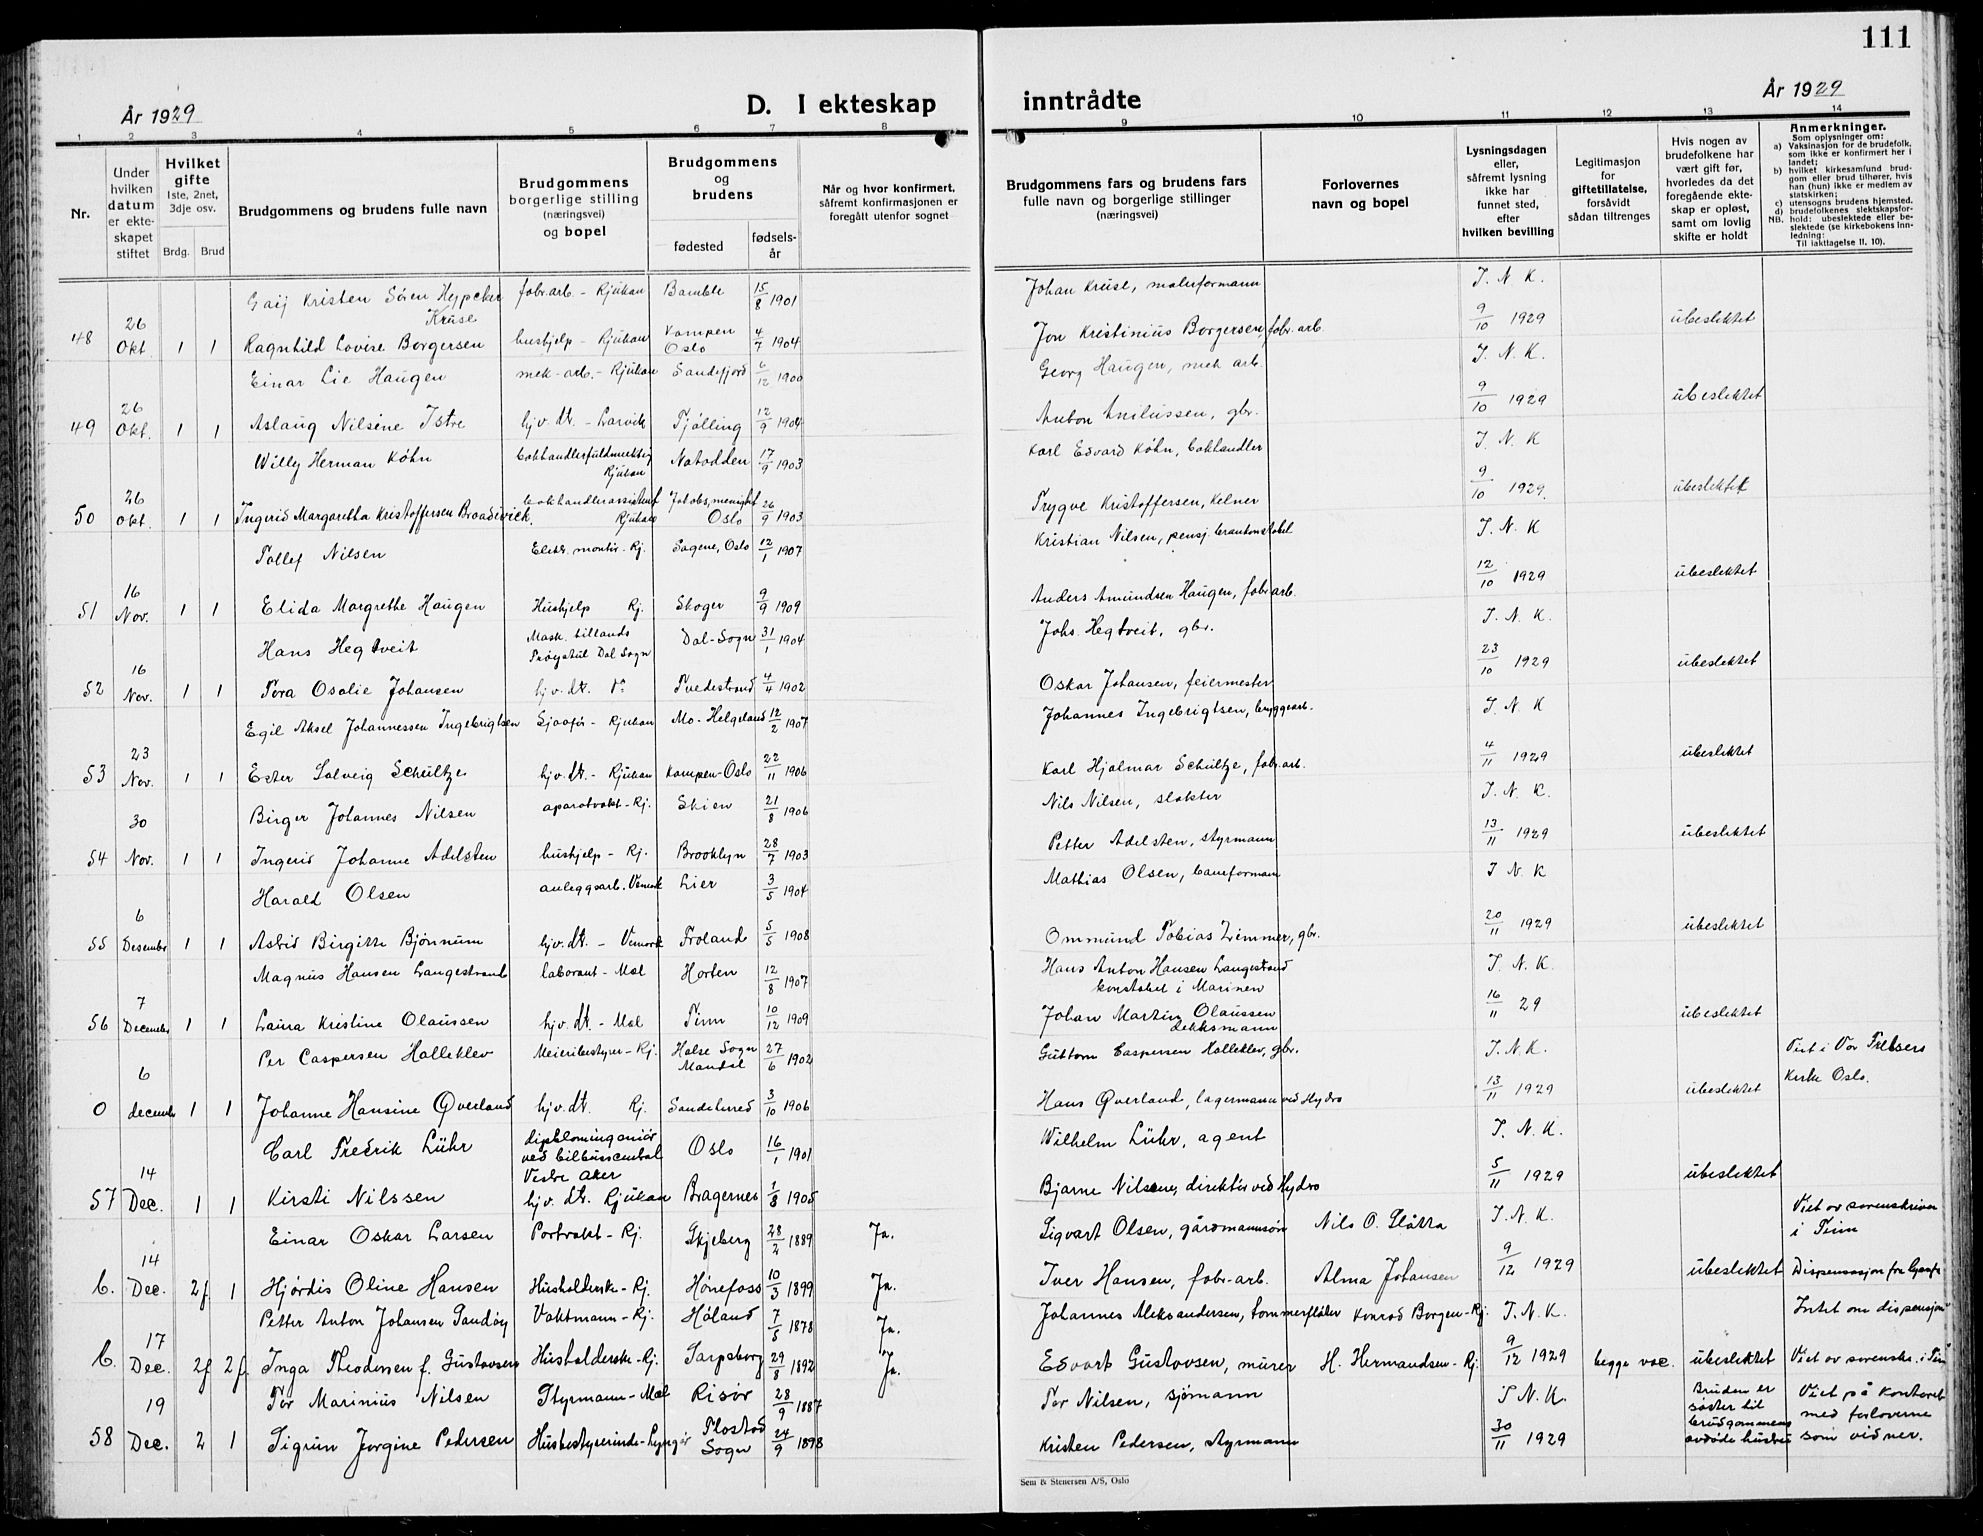 111
År 1929
D. I ekteskap inntrådte
År 1929
1 2 3 4 5 6 7 8 9 10 11 12 13 14
Nr.
Under hvilken datum er ekteskapet stiftet
Hvilket gifte
1ste, 2net, 3dje osv.
Brdg. Brud
Brudgommens og brudens fulle navn
Brudgommens borgerlige stilling (næringsvei) og bopel
Brudgommens og brudens
fødested
fødselsår
Når og hvor konfirmert, såfremt konfirmasjonen er foregått utenfor sognet
Brudgommens fars og brudens fars fulle navn og borgerlige stillinger (næringsvei)
Forlovernes navn og bopel
Lysningsdagen eller, såfremt lysning ikke har funnet sted, efter hvilken bevilling
Legitimasjon for giftetillatelse, forsåvidt sådan tiltrenges
Hvis nogen av brudefolkene har vært gift før, hvorledes da det foregående ekteskap er opløst, samt om lovlig skifte er holdt
Anmerkninger.
Som oplysninger om:
a) Vaksinasjon for de brudefolk, som ikke er konfirmert her i landet;
b) hvilket kirkesamfund brudgom eller brud tilhører, hvis han (hun) ikke er medlem av statskirken;
c) utensogns brudens hjemsted.
d) brudefolkenes slektskapsforhold: ubeslektede eller beslektede (se kirkebokens Innledning:
NB.
Til iakttagelse II. 10).
Kristen Søren Kruse fabr.arb - Rjukan Bamble 15/8 1901 Johan Kruse, malerformann I. N. K.
48 26 Okt 1 1 Ragnhild Lovise Borgersen hushjelp - Rjukan Kampen Oslo 4/7 1904 Jon Kristinius Borgersen, fabr.arb 9/10 1929 ubeslektet
Einar Lie Haugen mek-arb. - Rjukan Sandefjord 6/12 1900 Georg Haugen, mek arb. I. N. K.
49 26 Okt. 1 1 Aslaug Nilsine Istre hjv. dt. - Larvik Tjølling 12/9 1904 Anton gbr. 9/10 1929 ubeslektet
Willy Herman Køhn bokhandlerfuldmektig Rjukan Notodden 17/9 1903 Karl Edvard Køhn, bokhandler I. N. K
50 26 Okt. 1 1 Ingerid Margaretha Kristoffersen Broadwick Rjukan Jakobs menighet Oslo 26/9 1903 Trygve Kristoffersen, Kelner 9/10 1929. ubeslektet
Tollef Nilsen Elektr. montør - Rj. Sagene, Oslo 12/1 1907 Kristian Nilsen, pensj. brankonstabel I. N. K
51 16 Nov. 1 1 Elida Margrethe Haugen Hushjelp Rj. Skoger 9/9 1909 Anders Amundsen Haugen, fabr arb. 12/10 1929 ubeslektet
Hans Hegtveit Dal Sogn Dal-Sogn 31/1 1904 Johs. Hegtveit, gbr. I. N. K.
52 16 Nov. 1 1 Tora Osalie Johansen hjv. dt. Do Tvedestrand 4/4 1902 Oskar Johansen, feiermester 23/10 1929 ubeslektet
Egil Aksel Johannessen Ingebrigtsen Sjaafør - Rjukan Mo - Helgeland 12/2 1907 Johannes Ingebrigtsen, bryggearb. I. N. K
53 23 Nov. 1 1 Ester Solveig Schultze hjv. dt. - Rjukan Kampen-Oslo 22/11 1906 Karl Hjalmar Schultze, fabr. arb. 4/11 1929 ubeslektet
Birger Johannes Nilsen aparatvakt - Rj. Skien 21/8 1906 Nils Nilsen, slakter I. N. K.
54 30 Nov. 1 1 Ingerid Johanne Adelsten hushjelp - Rj. Brooklyn 28/7 1903 Petter Adelsten, styrmann 13/11 1929 ubeslektet
Harald Olsen anleggsarb. Vemork Lier 3/5 1904 Mathias Olsen, baneformann I N. K
55 6 Desember 1 1 Astrid Birgitte Bjønnum hjv. dt. - Vemork Froland 5/5 1908 Ommund Tobias Limmer, gbr. 20/11 1929 ubeslektet
Magnus Hansen Langestrand laborant - Mæl Horten 12/8 1907 Hans Anton Hansen Langestrand konstabel i Marinen I. N. K.
56 7 December 1 1 Laura Kristine Olaussen hjv. dt. - Mæl Tinn 10/12 1909 Johan Martin Olaussen dekksmann 16/11 29 ubeslektet
Per Caspersen Holleklev Meieribestyrer - Rj. Halse Sogn Mandal 27/6 1902 Guttorm Caspersen Holleklev, gbr. I. N. K. Viet i Vor Frelsers Kirke Oslo.
0 6 december 1 1 Johanne Hansine Øverland hjv. dt. Rj. Sandeherred 3/10 1906 Hans Øverland, lagermann ved Hydro 13/11 1929 ubeslektet
Carl Fredrik Lühr diplomingeniør ved bilbusscentral Vestre Aker Oslo 16/1 1901 Wilhelm Lühr, agent I. N. K.
57 14 Dec. 1 1 Kirsti Nilssen hjv. dt. Rjukan Bragernes 1/8 1905 Bjarne Nilssen, direktør ved Hydro 5/11 1929 ubeslektet
Einar Oskar Larsen Portvakt - Rj. Skjeberg 28/2 1889 Ja. Sigvart Olsen, gårdmannsøn Nils O. Slåtta I. N. K. Viet av sorenskriver i Tinn
b. 14 Dec. 2f 1 Hjørdis Oline Hansen Husholderske - Rj. Hønefoss 10/3 1899 Ja. Iver Hansen, fabr.-arb. Alma Johansen 9/12 1929 ubeslektet Dispensasjon fra
Petter Anton Johansen Sandøy Vaktmann - Rj. Høland 7/5 1878 Ja. Johannes Aleksandersen, tømmerfløter Konrad Borgen - Rj. I. N. K. Intet om dispensasjon
b. 17 Dec. 2f 2f. Inga Theodersen f. Gustavsen Husholderske - Rj. Sarpsborg 29/8 1892 Ja. Edvart Gustavsen, murer H. Hermandsen - Rj. 9/12 1929 begge vac. ubeslektet Viet av sorenskr. i Tinn
Tor Marinius Nilsen Styrmann - Mæl Risør 28/9 1887 Tor Nilsen, sjømann I N. K. Bruden er søster til brudgommens avdøde hustru Viet på kontoret med forloverne som vidner.
58 19 Dec. 2 1 Sigrun Jørgine Pedersen Husbestyrerinde - Lyngør Flosta Sogn 24/9 1898 Kristen Pedersen, styrmann 30/11 1929
Sem & Stenersen A/S, Oslo